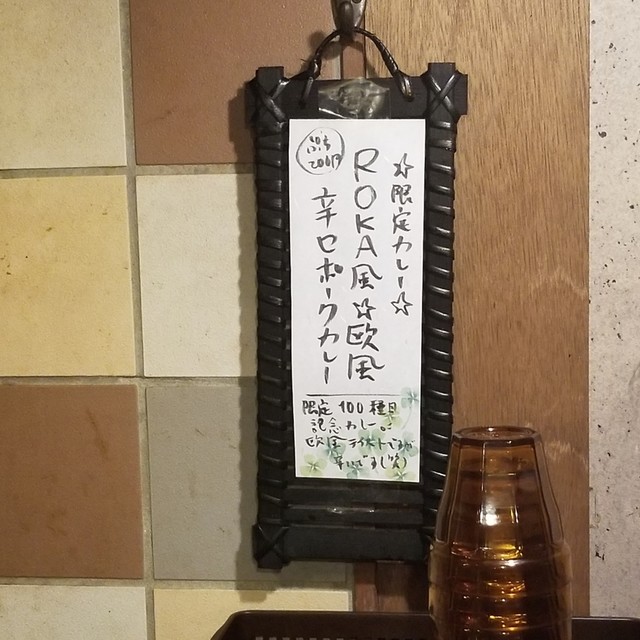 ☆限定カレー☆
ROKA風☆欧風
辛口ポークカレー
限定100種目
記念カレー
欧風テイストですが
辛いです(笑)